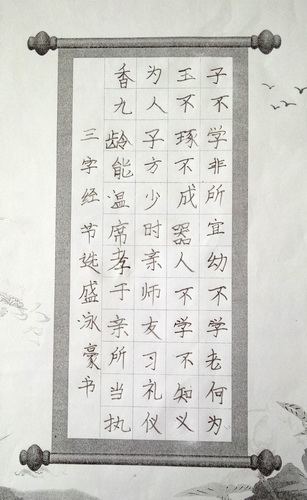 子不学非所宜幼不学老何为
玉不琢不成器人不学不知义
为人子方少时亲师友习礼仪
香九龄能温席孝于亲所当执
三字经节选盛泳豪书